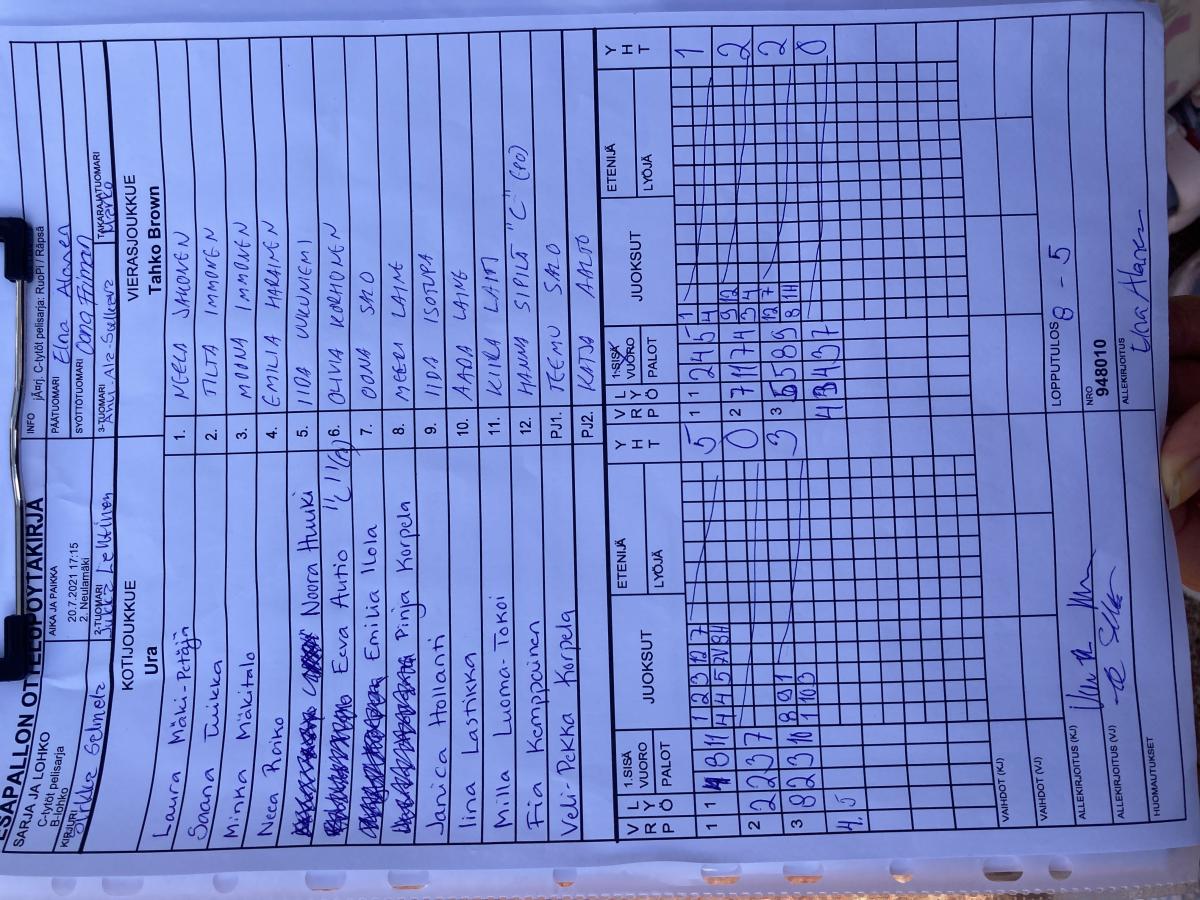 ESAPALLON OTTELUPÖYTÄKIRJA
SARJA JA LOHKO
C-tytöt pelisarja
B-lohko
AIKA JA PAIKKA
20.7.2021 17:15
2. Neulamäki
INFO
C-tytöt pelisarja: RuoPi / Räpsä
KIRJURI
PÄÄTUOMARI
Elna Alanen
SYÖTTÖTUOMARI
2-TUOMARI
3-TUOMARI
TAKARAJATUOMARI
Marko
KOTIJOUKKUE
Ura
VIERASJOUKKUE
Tahko Brown
Laura Mäki-Petäjä 1. NEELA JAKONEN
Saana Tuikka 2. TILTA IMMONEN
Minka Mäkitalo 3. MOONA IMMONEN
Neea Roiko 4. EMILIA HARAINEN
Noora Huuki 5. IIDA VUKUNIEMI
Eeva Autio "C" 6. OLIVIA KORHONEN
Emilia Ilola 7. OONA SALO
Pinja Korpela 8. MEERI LAINE
Janica Hollanti 9. IIDA ISOTUPA
Iina Lastikka 10. AADA LAINE
Milla Luoma-Tokoi 11. KIIRA LAITI
Fia Kemppainen 12. HANNA SIPILÄ "C" (PO)
Veli-Pekka Korpela PJ1. TEEMU SALO
PJ2. KATJA AALTO
V R P L Y Ö 1.SISÄ VUORO PALOT JUOKSUT ETENIJÄ LYÖJÄ Y H T V R P L Y Ö 1.SISÄ VUORO PALOT JUOKSUT ETENIJÄ LYÖJÄ Y H T
1 1 4 8 11 1 2 3 12 7 5 1 1 2 4 5 1 1
4 4 5 7V 8H 4
2 2 2 3 7 0 2 7 11 7 4 9 12 2
3 4
3 8 2 3 10 8 9 1 3 3 5 5 8 9 12 7 2
1 10 3 8 1H
4. 5 4 3 4 3 7 0
VAIHDOT (KJ)
VAIHDOT (VJ)
LOPPUTULOS
8 - 5
ALLEKIRJOITUS (KJ)
NRO
948010
ALLEKIRJOITUS (VJ)
ALLEKIRJOITUS
Elna Alanen
HUOMAUTUKSET